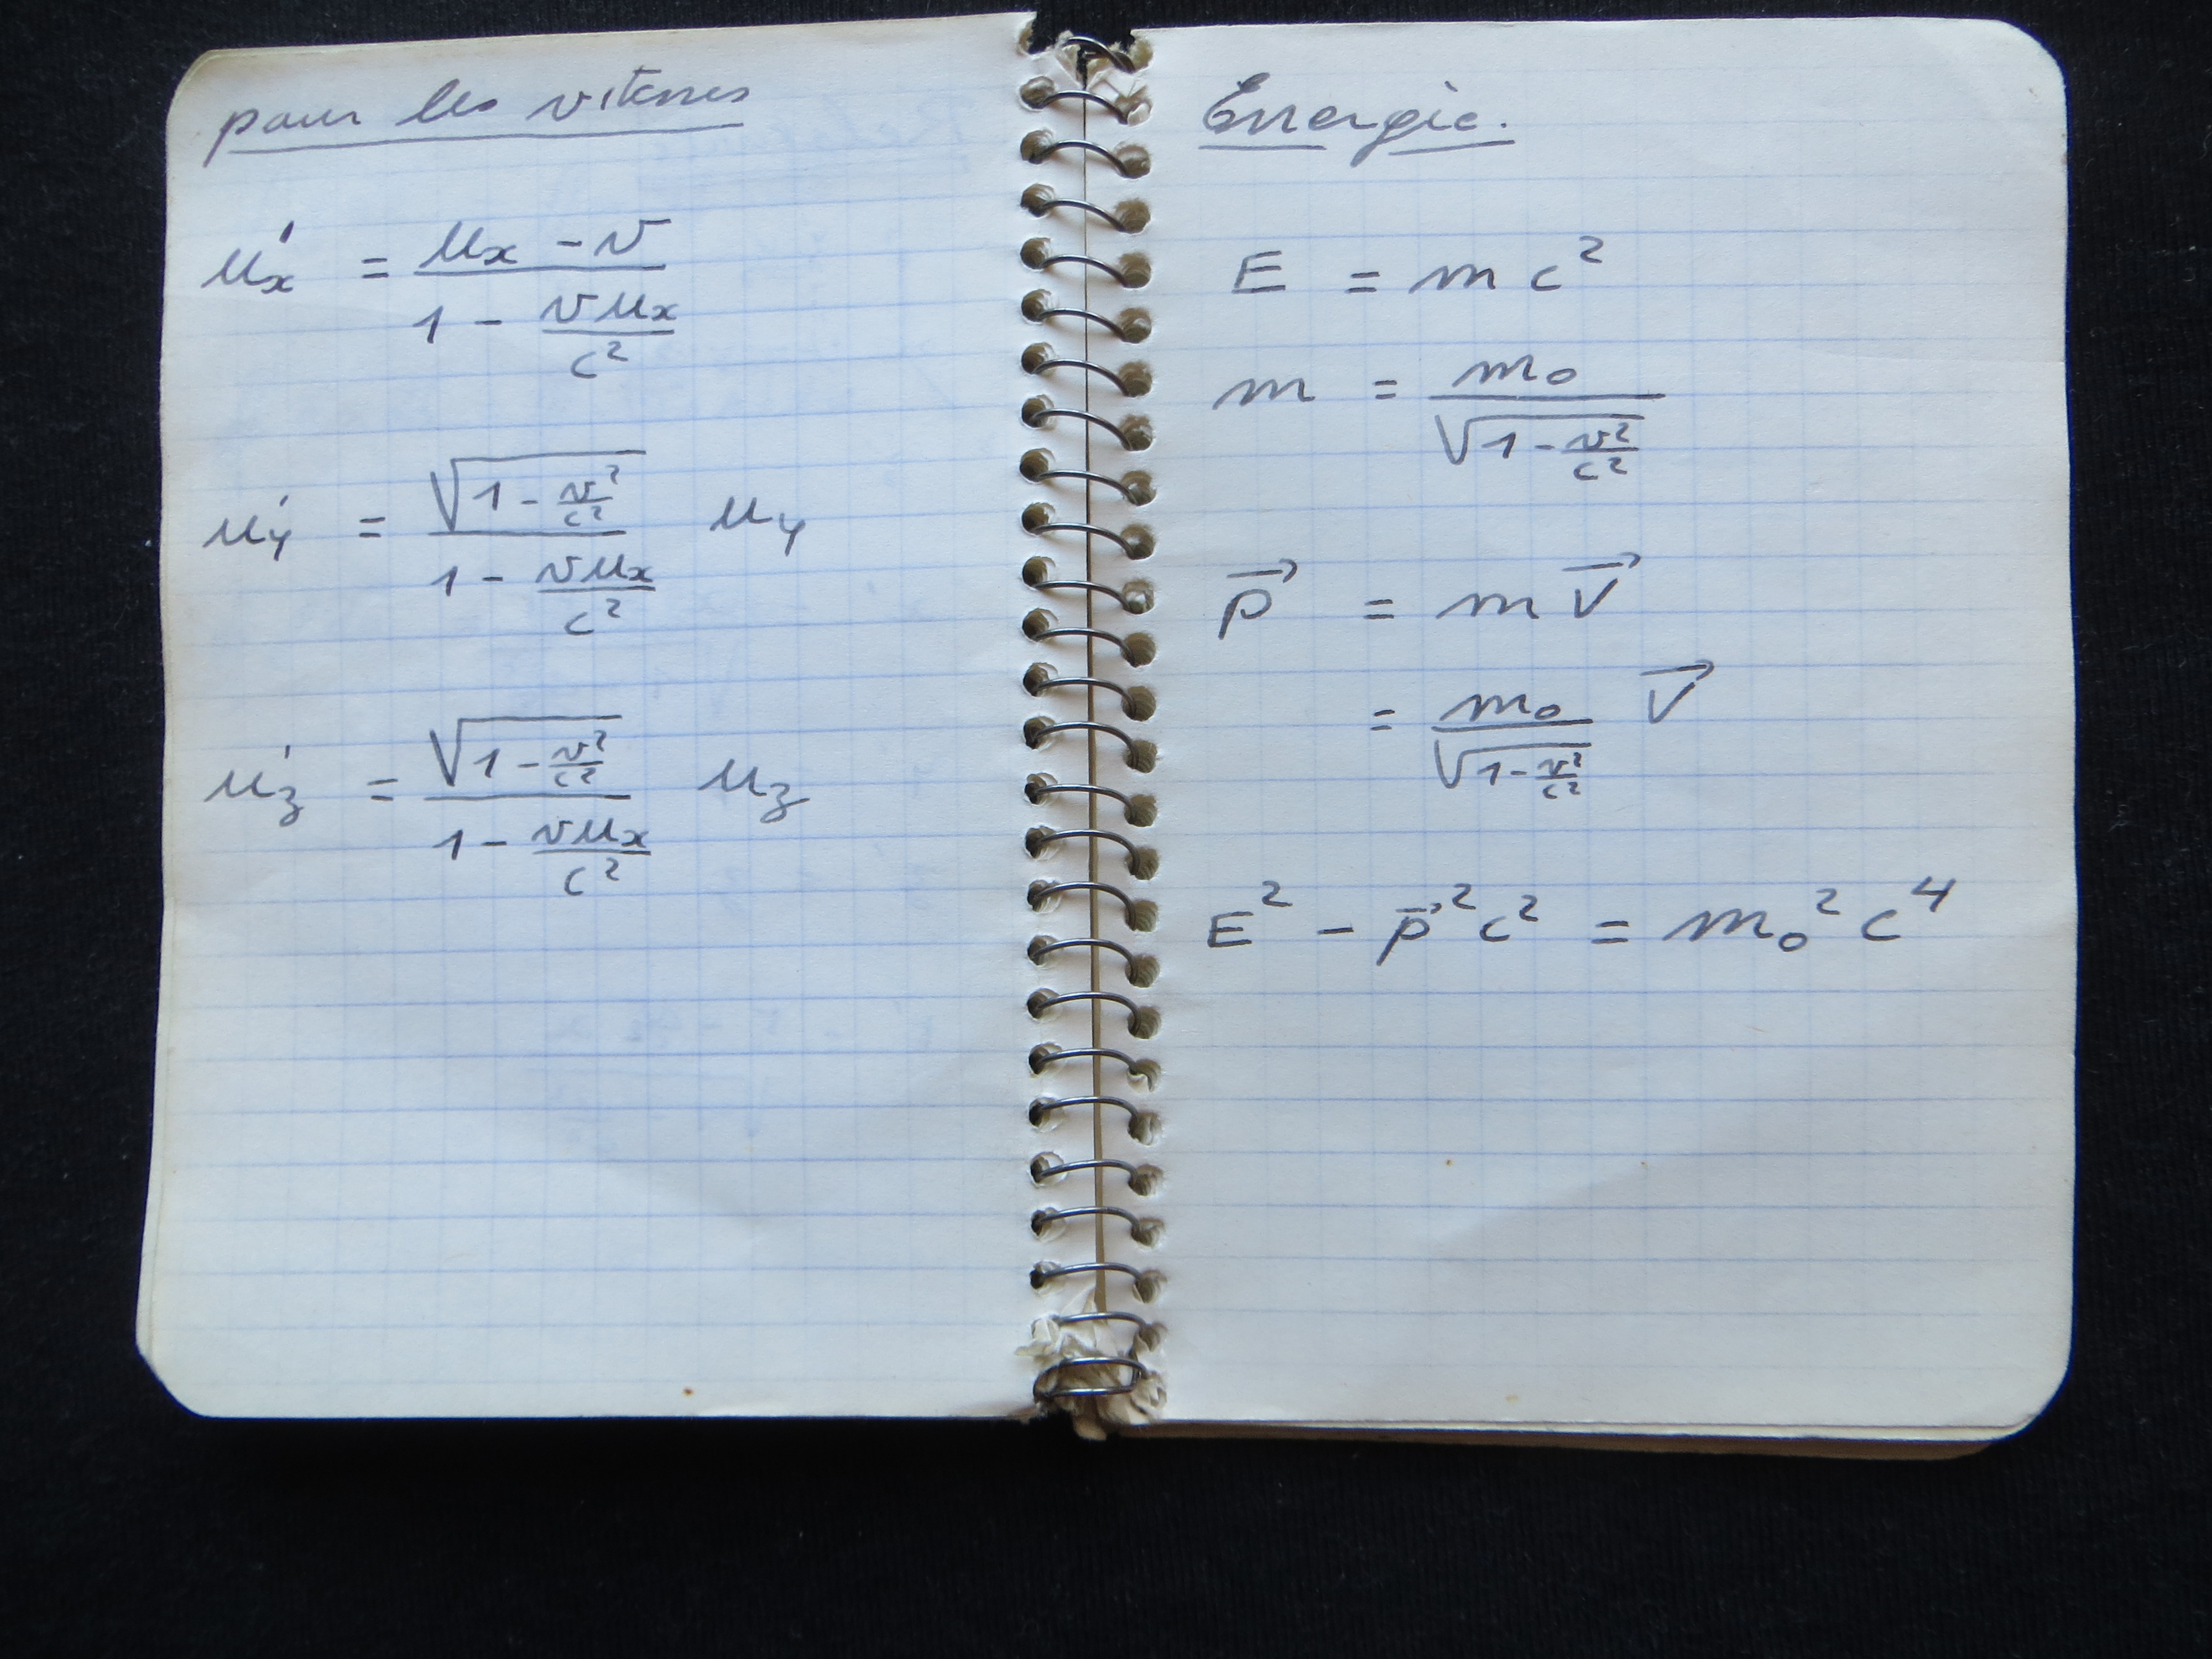 pour les vitesses
u'x = (ux - v) / (1 - vux/c²)
u'y = √(1 - v²/c²) / (1 - vux/c²) uy
u'z = √(1 - v²/c²) / (1 - vux/c²) uz
Energie.
E = mc²
m = m₀ / √(1 - v²/c²)
p⃗ = m v⃗
= m₀ / √(1 - v²/c²) v⃗
E² - p⃗²c² = m₀²c⁴